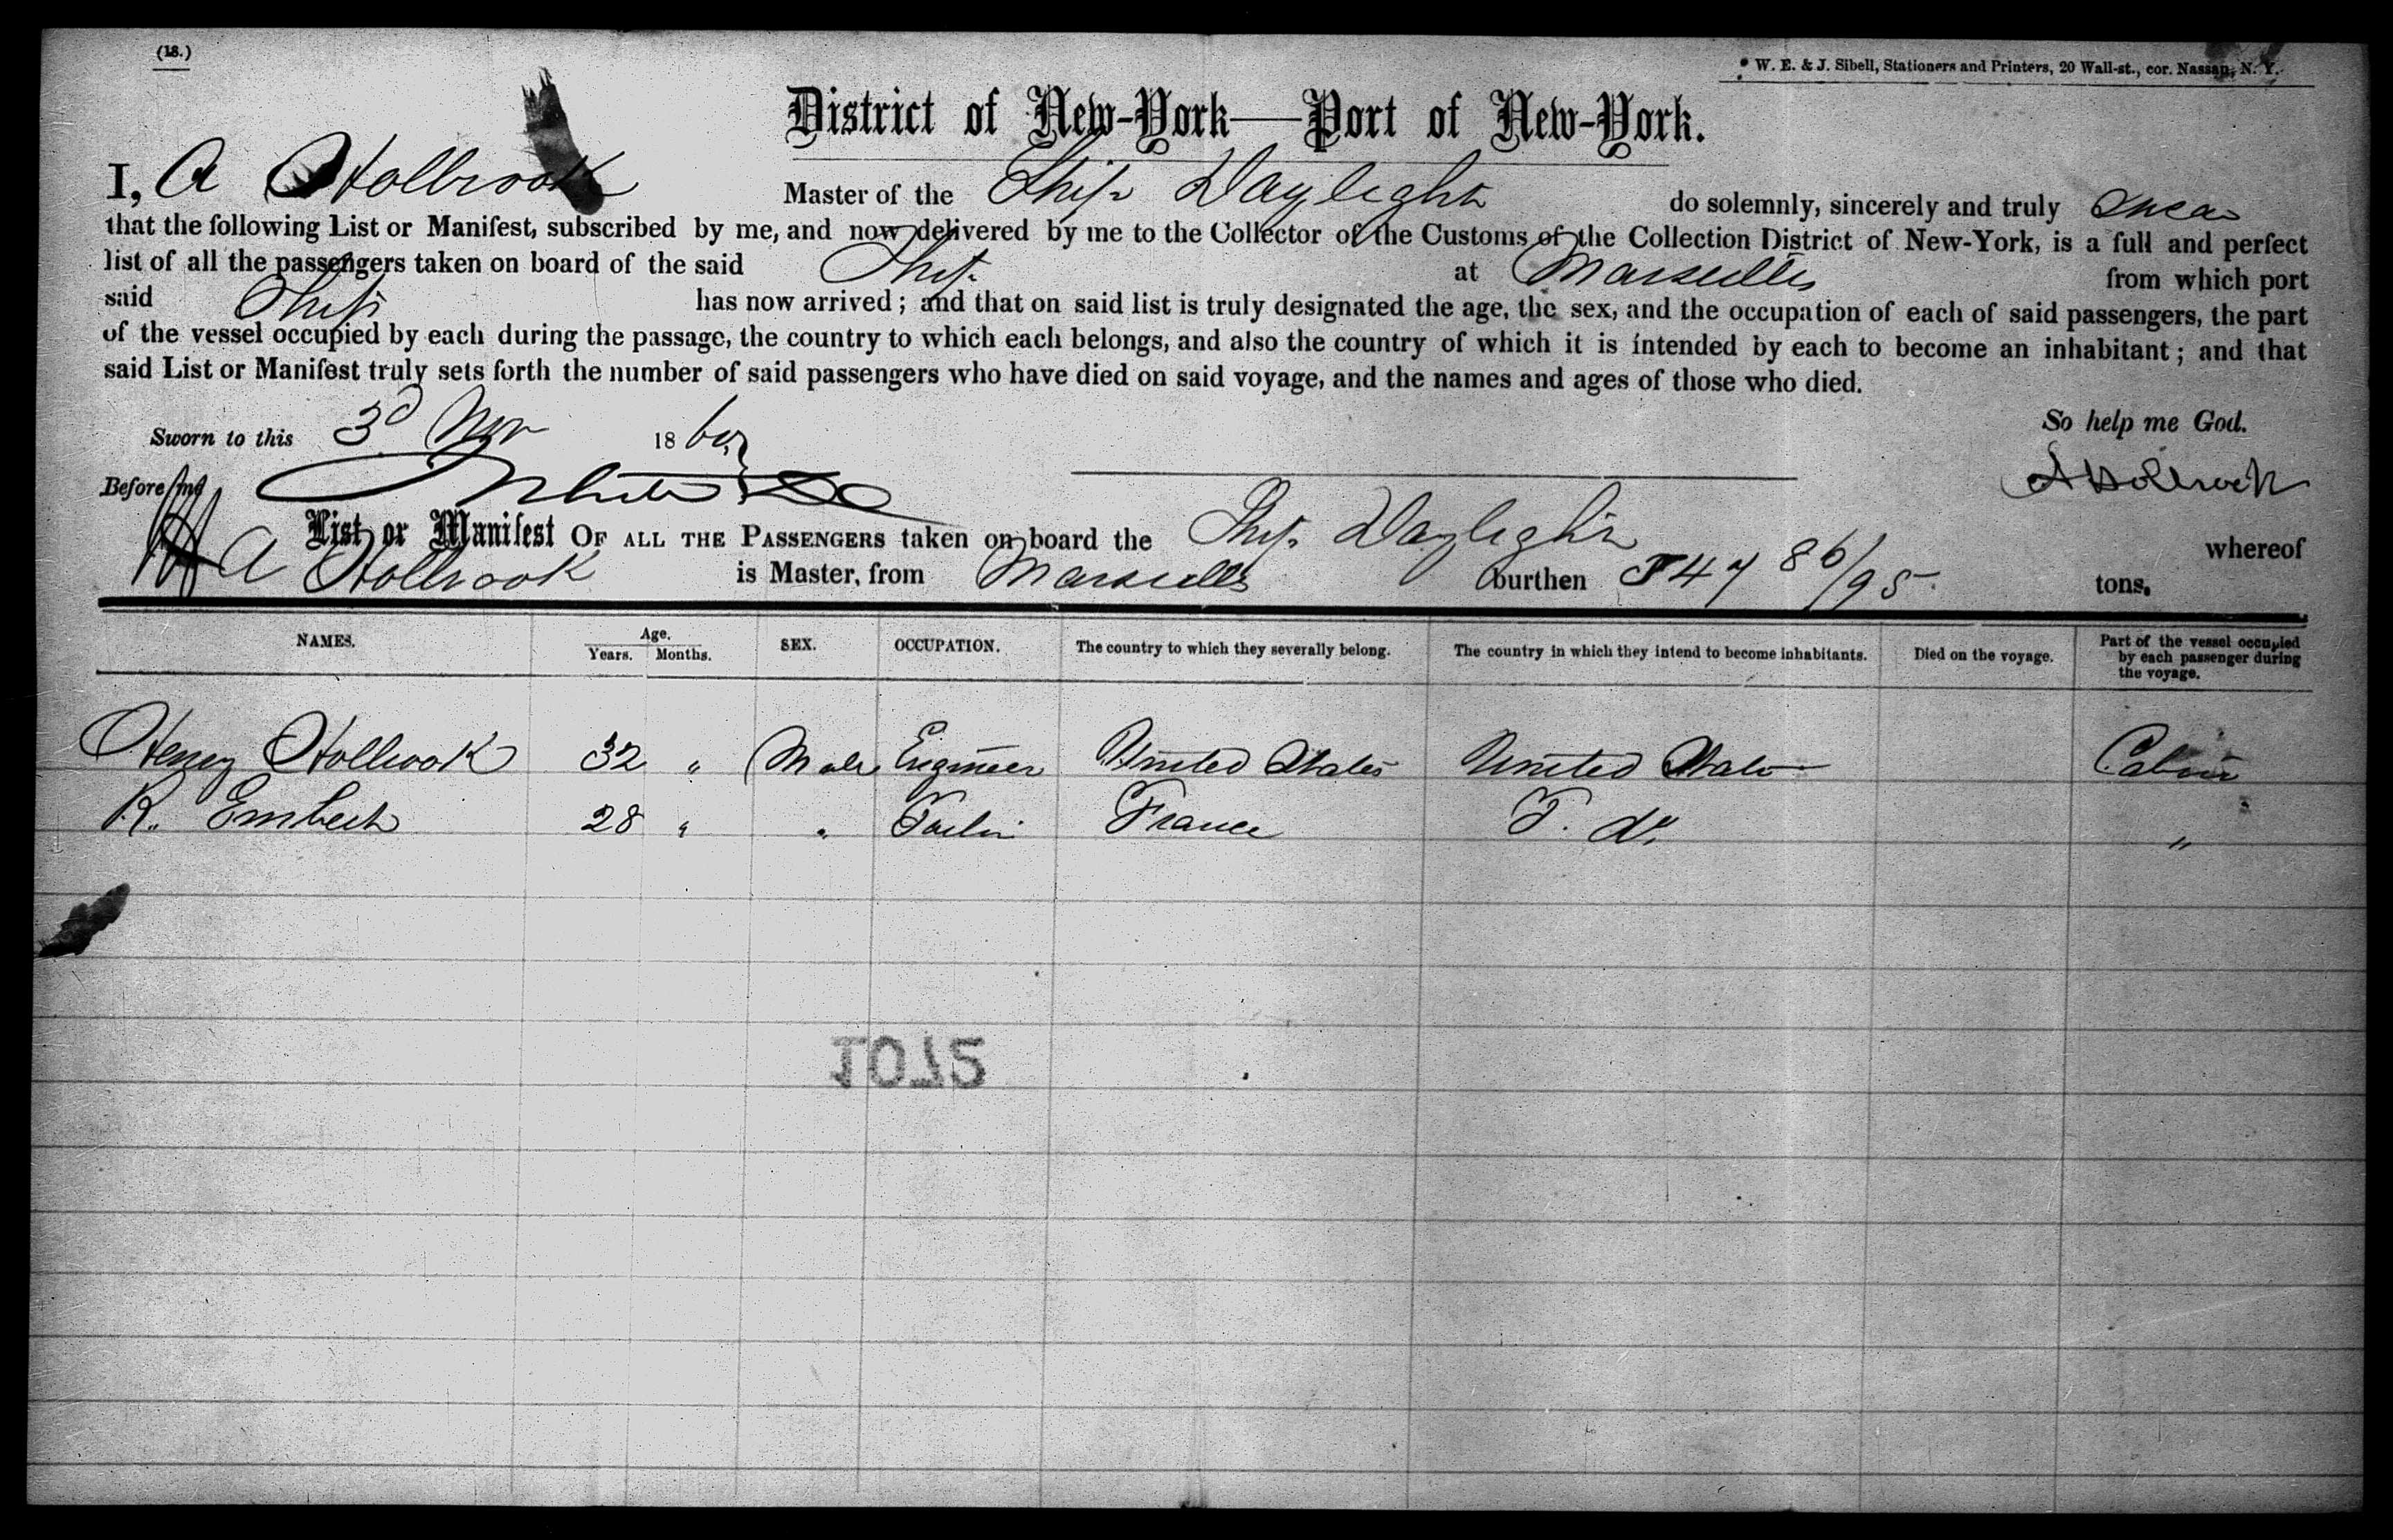 (18.)
W. E. & J. Sibell, Stationers and Printers, 20 Wall-st., cor. Nassau, N. Y.
District of New-York—Port of New-York.
I, A Holbrook Master of the Ship Daylight do solemnly, sincerely and truly swear
that the following List or Manifest, subscribed by me, and now delivered by me to the Collector of the Customs of the Collection District of New-York, is a full and perfect
list of all the passengers taken on board of the said Ship at Marseilles from which port
said Ship has now arrived; and that on said list is truly designated the age, the sex, and the occupation of each of said passengers, the part
of the vessel occupied by each during the passage, the country to which each belongs, and also the country of which it is intended by each to become an inhabitant; and that
said List or Manifest truly sets forth the number of said passengers who have died on said voyage, and the names and ages of those who died.
So help me God.
Sworn to this 3d Nov 18
Before me
A Holbrook
List or Manifest OF ALL THE PASSENGERS taken on board the Ship Daylight whereof
A Holbrook is Master, from Marseilles burthen 47 86/95 tons.
NAMES. Age. Years. Months. SEX. OCCUPATION. The country to which they severally belong. The country in which they intend to become inhabitants. Died on the voyage. Part of the vessel occupied by each passenger during the voyage.
Henry Holbrook 32 " Male Engineer United States United States Cabin
R. 28 " " France "
1072